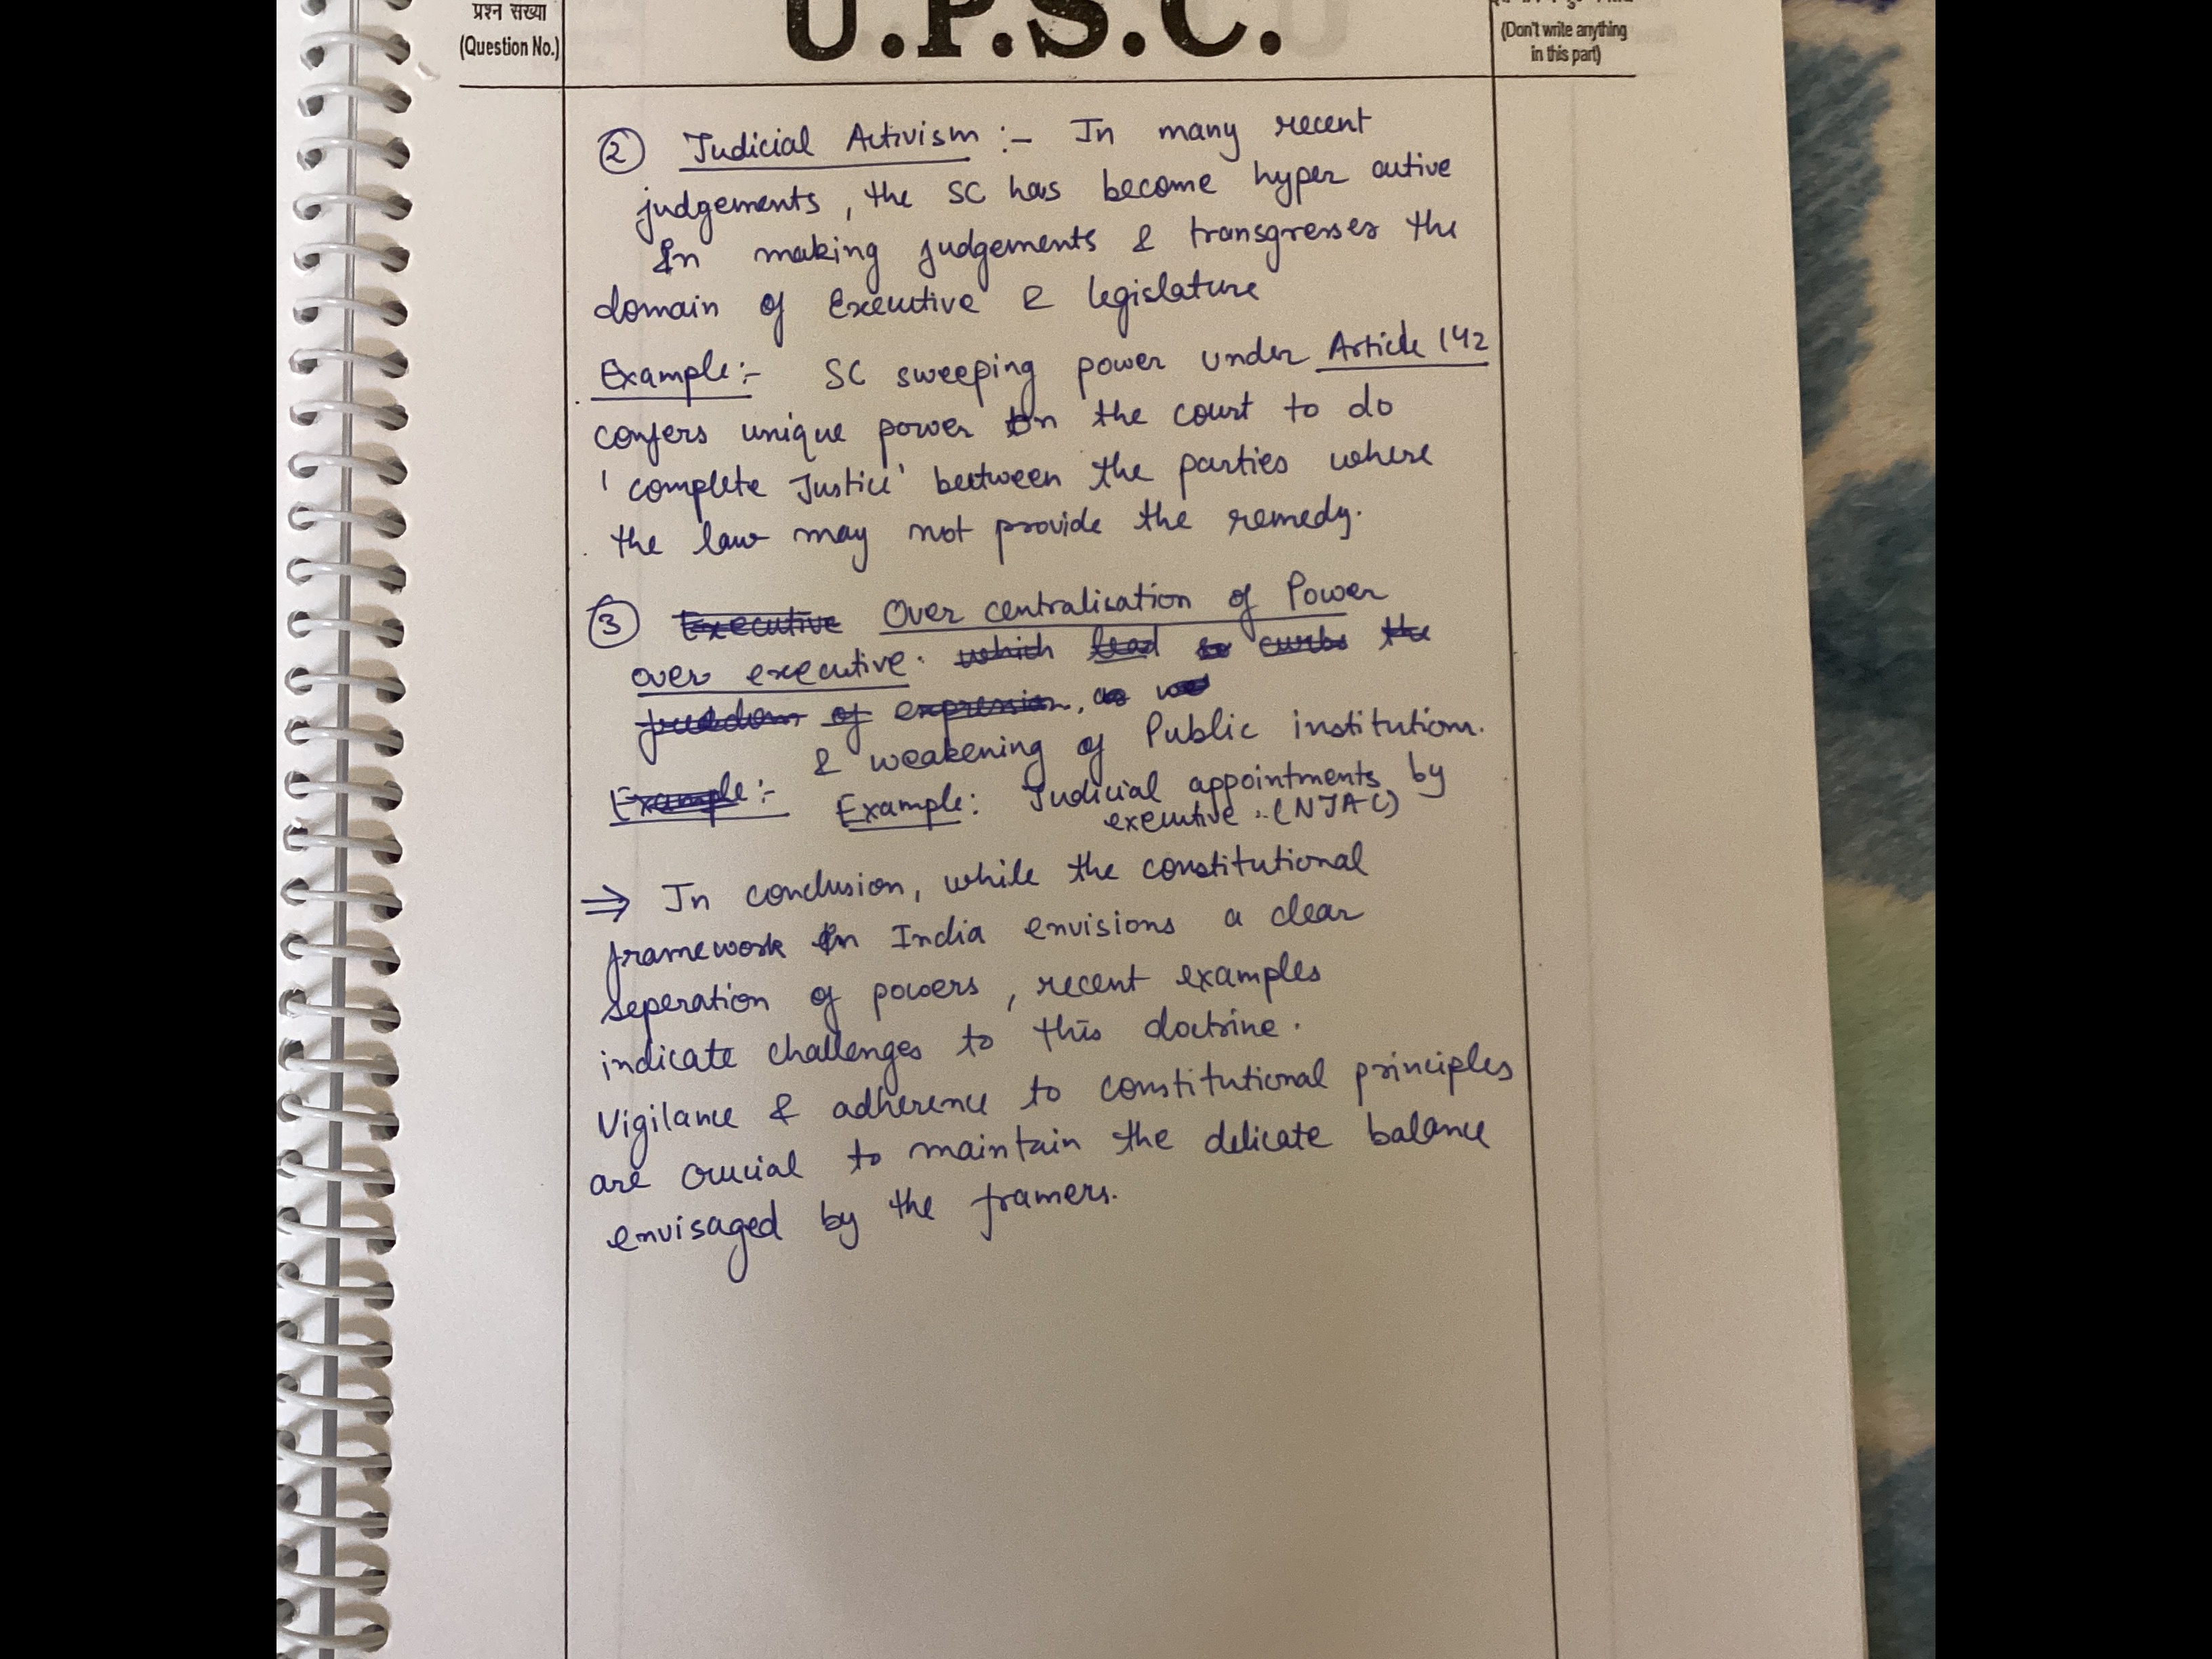 प्रश्न संख्या
(Question No.)
U.P.S.C.
(Don't write anything
in this part)
② Judicial Activism :- In many recent
judgements, the SC has become hyper active
In making judgements & transgresses the
domain of Executive & legislature
Example:- SC sweeping power under Article 142
confers unique power on the court to do
'complete Justice' between the parties where
the law may not provide the remedy.
③ Executive Over centralisation of Power
over executive. which lead to curbs the
freedom of expression, as
& weakening of Public institutions.
Example:- Example: Judicial appointments by
executive. (NJAC)
⇒ In conclusion, while the constitutional
framework In India envisions a clear
seperation of powers, recent examples
indicate challenges to this doctrine.
Vigilance & adherence to constitutional principles
are crucial to maintain the delicate balance
envisaged by the framers.